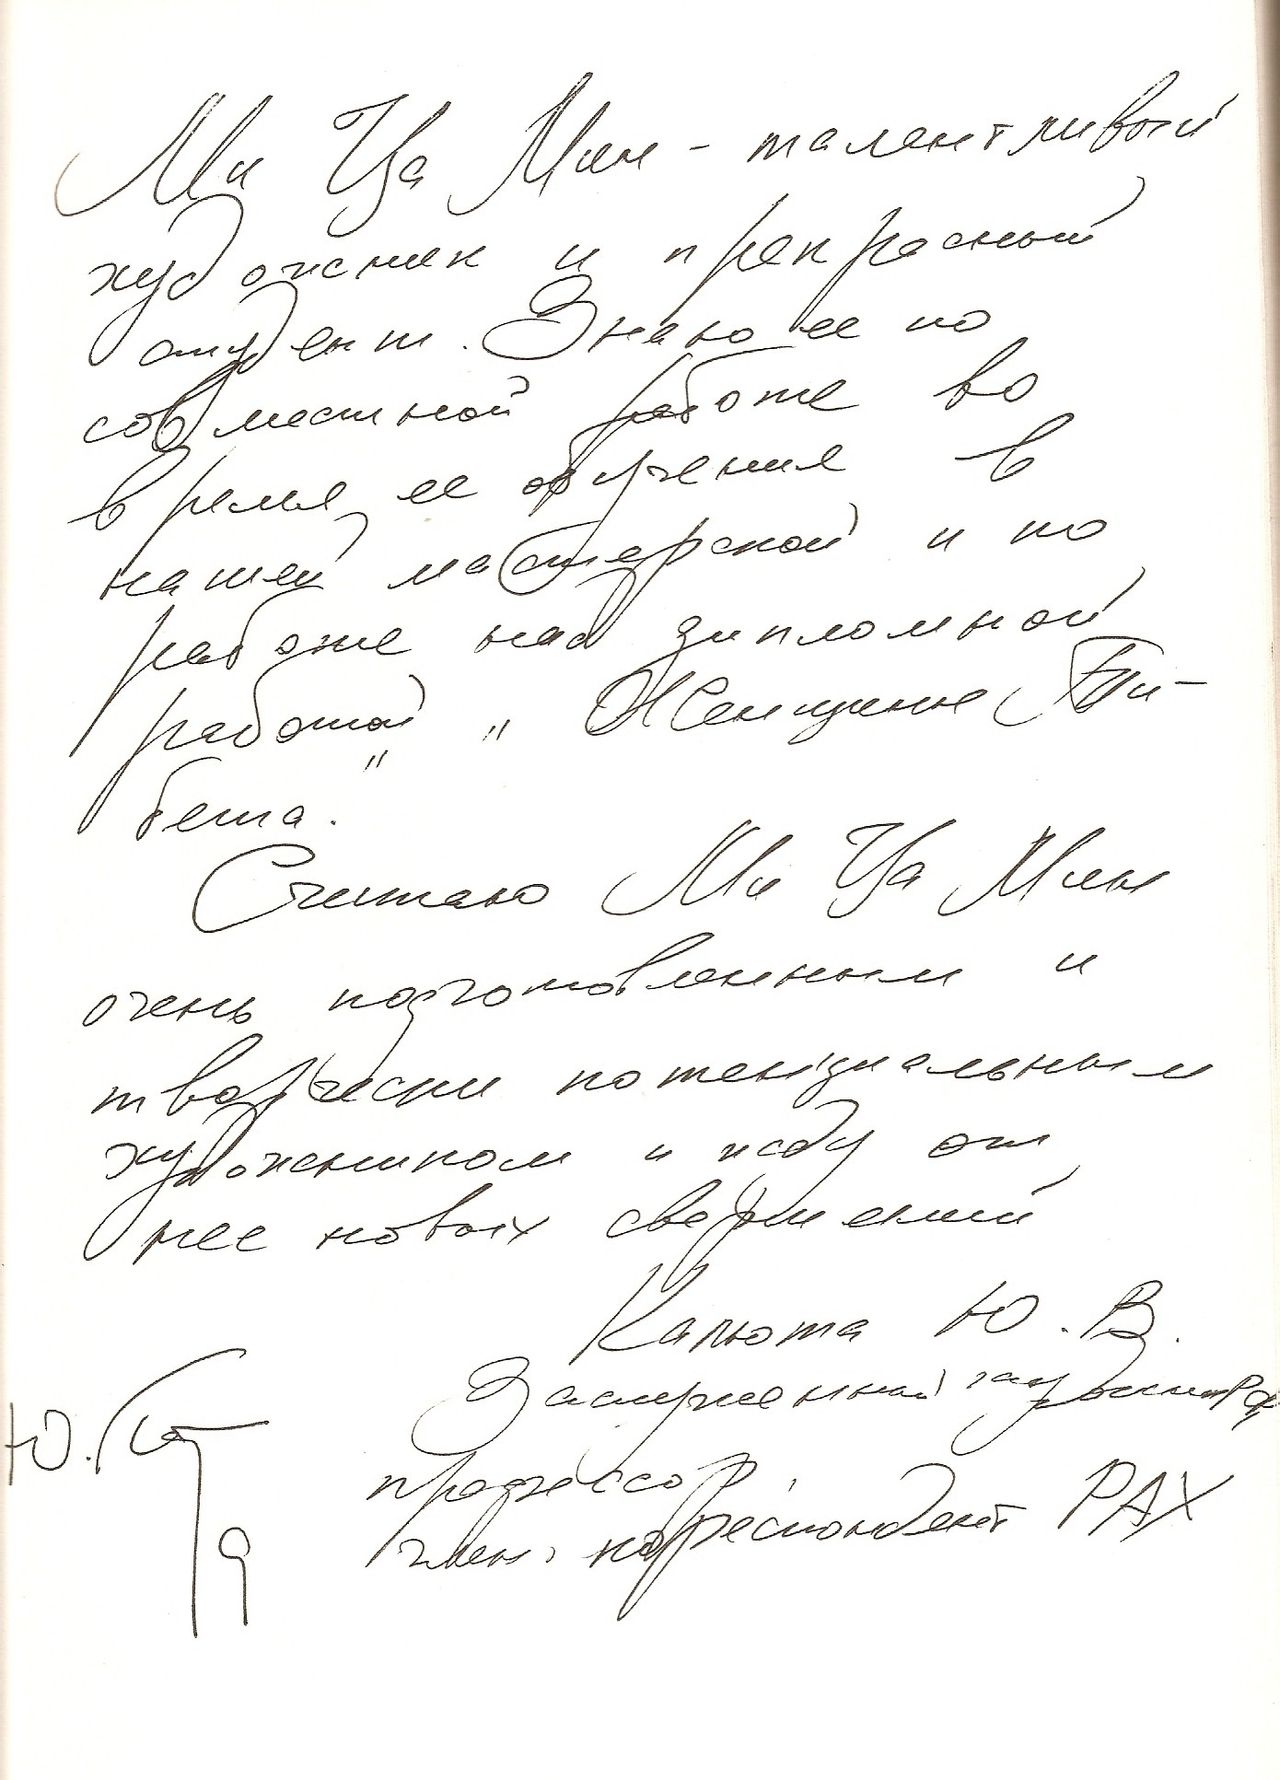 Ми Ца Мин - талантливый
художник и прекрасный
студент. Знаю ее по
совместной работе во
время ее обучения в
нашей мастерской и по
работе над дипломной
работой „Женщины Ти-
бета."
Считаю Ми Ца Мин
очень подготовленным и
творчески потенциальным
художником и жду от
нее новых свершений
Калюта Ю. В.
Заслуженный художник РФ,
профессор,
член. корреспондент РАХ
Ю. Ка